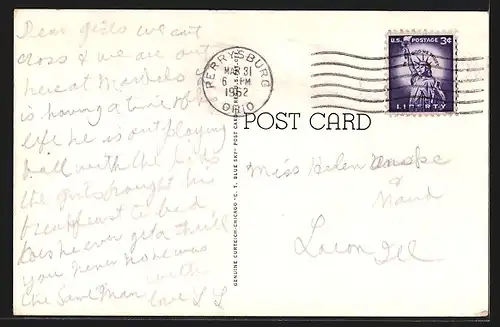 Dear girls we are
across & we are out
here at Mankels
is having a time of his
life he is out playing
ball with the kids
the girls brought his
breakfeast to bed
Does he ever get a thrill
you never no he was
the same man
love L L
PERRYSBURG
MAR 31
6 PM
1962
OHIO
U.S. POSTAGE 3¢
LIBERTY
POST CARD
GENUINE CURTEICH-CHICAGO "C.T. BLUE SKY" POST CARD
Miss Helen
&
Maud
Lacon Ill